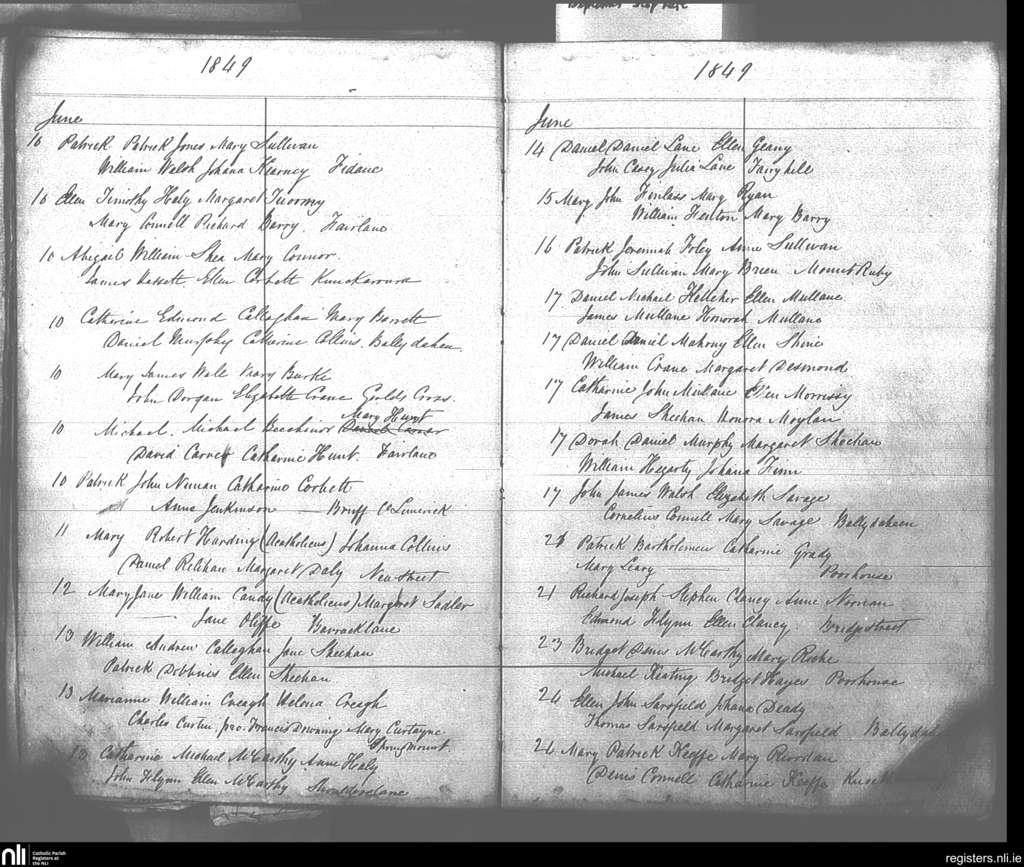 1849
June
10 Patrick Patrick Jones Mary Sullivan
William Walsh Johana Kearney
10 Ellen Timothy Haly Margaret Twormy
Mary Connell Richard Barry. Fairlane
10 Abigail William Shea Mary Connor.
James Hassett Ellen Corbett
10 Catherine Edmond Callaghan Mary Barrett
Daniel Murphy Catherine Collins. Ballydaheen
10 Mary James Wall Mary Burke
John Dorgan Elizabeth Crane Goulds Cross.
Mary Hunt
10 Michael. Michael Beechinor
David Carver Catharine Hunt. Fairlane
10 Patrick John Nunan Catharine Corbett
Anne Jenkinson — Bruff Co Limerick
11 Mary Robert Harding (Acatholicus) Johanna Collins
Daniel Relihan Margaret Daly New Street
12 Mary Jane William Candy (Acatholicus) Margaret Sadler
— Jane Oliffe Barracklane
13 William Andrew Callaghan Jane Sheehan
Patrick Dobbins Ellen Sheehan
13 Marianne William Creagh Helena Creagh
Charles Curtin pro. Francis Downing Mary Curtayne
Springmount.
13 Catharine Michael McCarthy Anne Haly
John Flynn Ellen McCarthy
1849
June
14 Daniel Daniel Lane Ellen Geany
John Casey Julia Lane Fairyhill
15 Mary John Finlass Mary Ryan
William Fenton Mary Barry
16 Patrick Jeremiah Foley Anne Sullivan
John Sullivan Mary Breen Mount Ruby
17 Daniel Michael Kelleher Ellen Mullane
James Mullane Honorah Mullane
17 Daniel Daniel Mahony Ellen Shine
William Crane Margaret Desmond
17 Catharine John Mullane Ellen Morrissy
James Sheehan Honora Moylan
17 Dorah Daniel Murphy Margaret Sheehan
William Hegarty Johana Finn
17 John James Walsh Elizabeth Savage
Cornelius Connell Mary Savage Ballydaheen
21 Patrick Bartholomew Catharine Grady
Mary Leary — Poorhouse
21 Richard Joseph Stephen Clancy Anne Noonan
Edmond Flynn Ellen Clancy Bridge Street
23 Bridget Denis McCarthy Mary Roche
Michael Keating Bridget Hayes Poorhouse
24 Ellen John Sarsfield Johana Deady
Thomas Sarsfield Margaret Sarsfield
24 Mary Patrick Keeffe Mary Riordan
Denis Connell Catharine Keeffe
nli Catholic Parish
Registers at
the NLI
registers.nli.ie